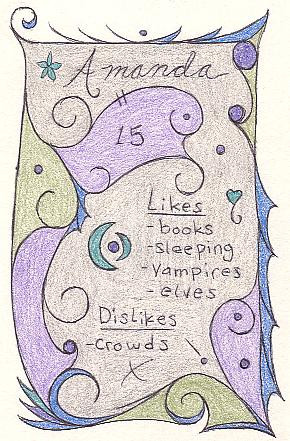 Amanda
15
Likes
-books
-sleeping
-vampires
-elves
Dislikes
-crowds